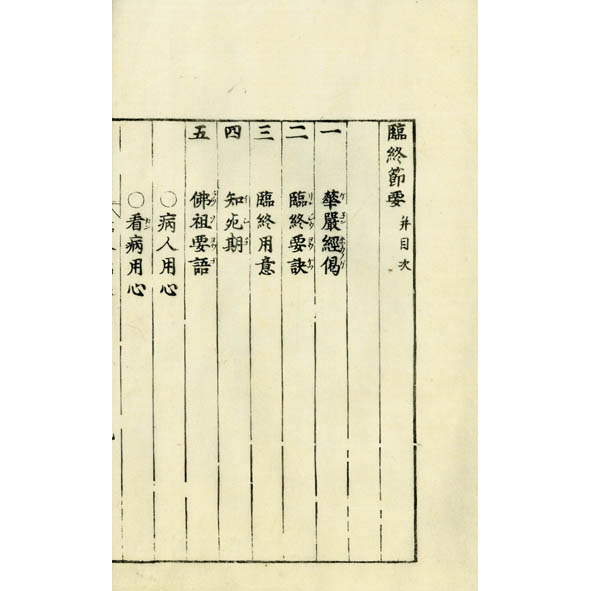 臨終節要 并目次
一 華嚴經偈
二 臨終要訣
三 臨終用意
四 知死期
五 佛祖要語
○病人用心
○看病用心